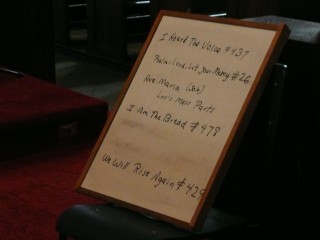 I Heard The Voice #437
Psalm: Lord, Let Your Mercy #26
Ave Maria
Mass Parts
I Am The Bread #978
We Will Rise Again #429